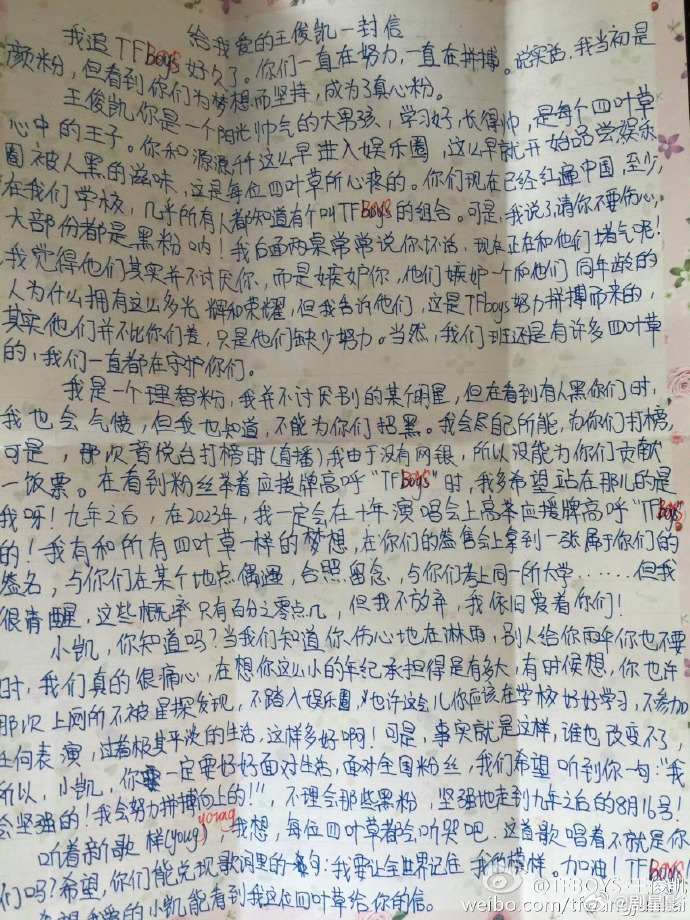 给我爱的王俊凯一封信
我追TFBoys好久了。你们一直在努力,一直在拼搏。说实话,我当初是
颜粉,但看到你们为梦想而坚持,成为了真心粉。
王俊凯,你是一个阳光帅气的大男孩,学习好,长得帅,是每个四叶草
心中的王子。你和源源,千这么早进入娱乐圈,这么早就开始品尝娱乐
圈被人黑的滋味,这是每位四叶草所心疼的。你们现在已经红遍中国,至少,
在我们学校,几乎所有人都知道有个叫TFBoys的组合。可是,我说了请你不要伤心,
大部份都是黑粉呐!我后面两桌常常说你坏话,现在正在和他们堵气呢!
我觉得他们其实并不讨厌你,而是嫉妒你,他们嫉妒一个和他们同年龄的
人为什么拥有这么多光辉和荣耀,但我告诉他们,这是TFboys努力拼搏而来的,
其实他们并不比你们差,只是他们缺少努力。当然,我们班还是有许多四叶草
的,我们一直都在守护你们。
我是一个理智粉,我并不讨厌别的某个明星,但在看到有人黑你们时,
我也会气愤,但我也知道,不能为你们招黑。我会尽自己所能,为你们打榜,
可是,那次音悦台打榜时(直播)我由于没有网银,所以没能为你们贡献
一饭票。在看到粉丝举着应援牌高呼“TFBoys”时,我多希望站在那儿的是
我呀!九年之后,在2023年,我一定会在十年演唱会上高举应援牌高呼“TFBoys”
的!我有和所有四叶草一样的梦想,在你们的签售会上拿到一张属于你们的
签名,与你们在某个地点偶遇,合照留念,与你们考上同一所大学……但我
很清醒,这些概率只有百分之零点几,但我不放弃,我依旧爱着你们!
小凯,你知道吗?当我们知道你伤心地在淋雨,别人给你雨伞你也不要
时,我们真的很痛心,在想你这么小的年纪承担得是有多大,有时候想,你也许
那次上厕所不被星探发现,不踏入娱乐圈,也许这会儿你应该在学校好好学习,不参加
任何表演,过着极其平淡的生活,这样多好啊!可是,事实就是这样,谁也改变不了,
所以,小凯,你一定要好好面对生活,面对全国粉丝,我们希望听到你一句:“我
会坚强的!我会努力拼搏向上的!”,不理会那些黑粉,坚强地走到九年之后的8月16号!
听着新歌样(young),我想,每位四叶草都会听哭吧,这首歌唱着不就是你
们吗?希望,你们能兑现歌词里的一句:我要让全世界记住我的模样。加油!TFBoys!
我爱的小凯能看到我这位四叶草给你的信。
@TFBOYS-王俊凯
weibo.com/